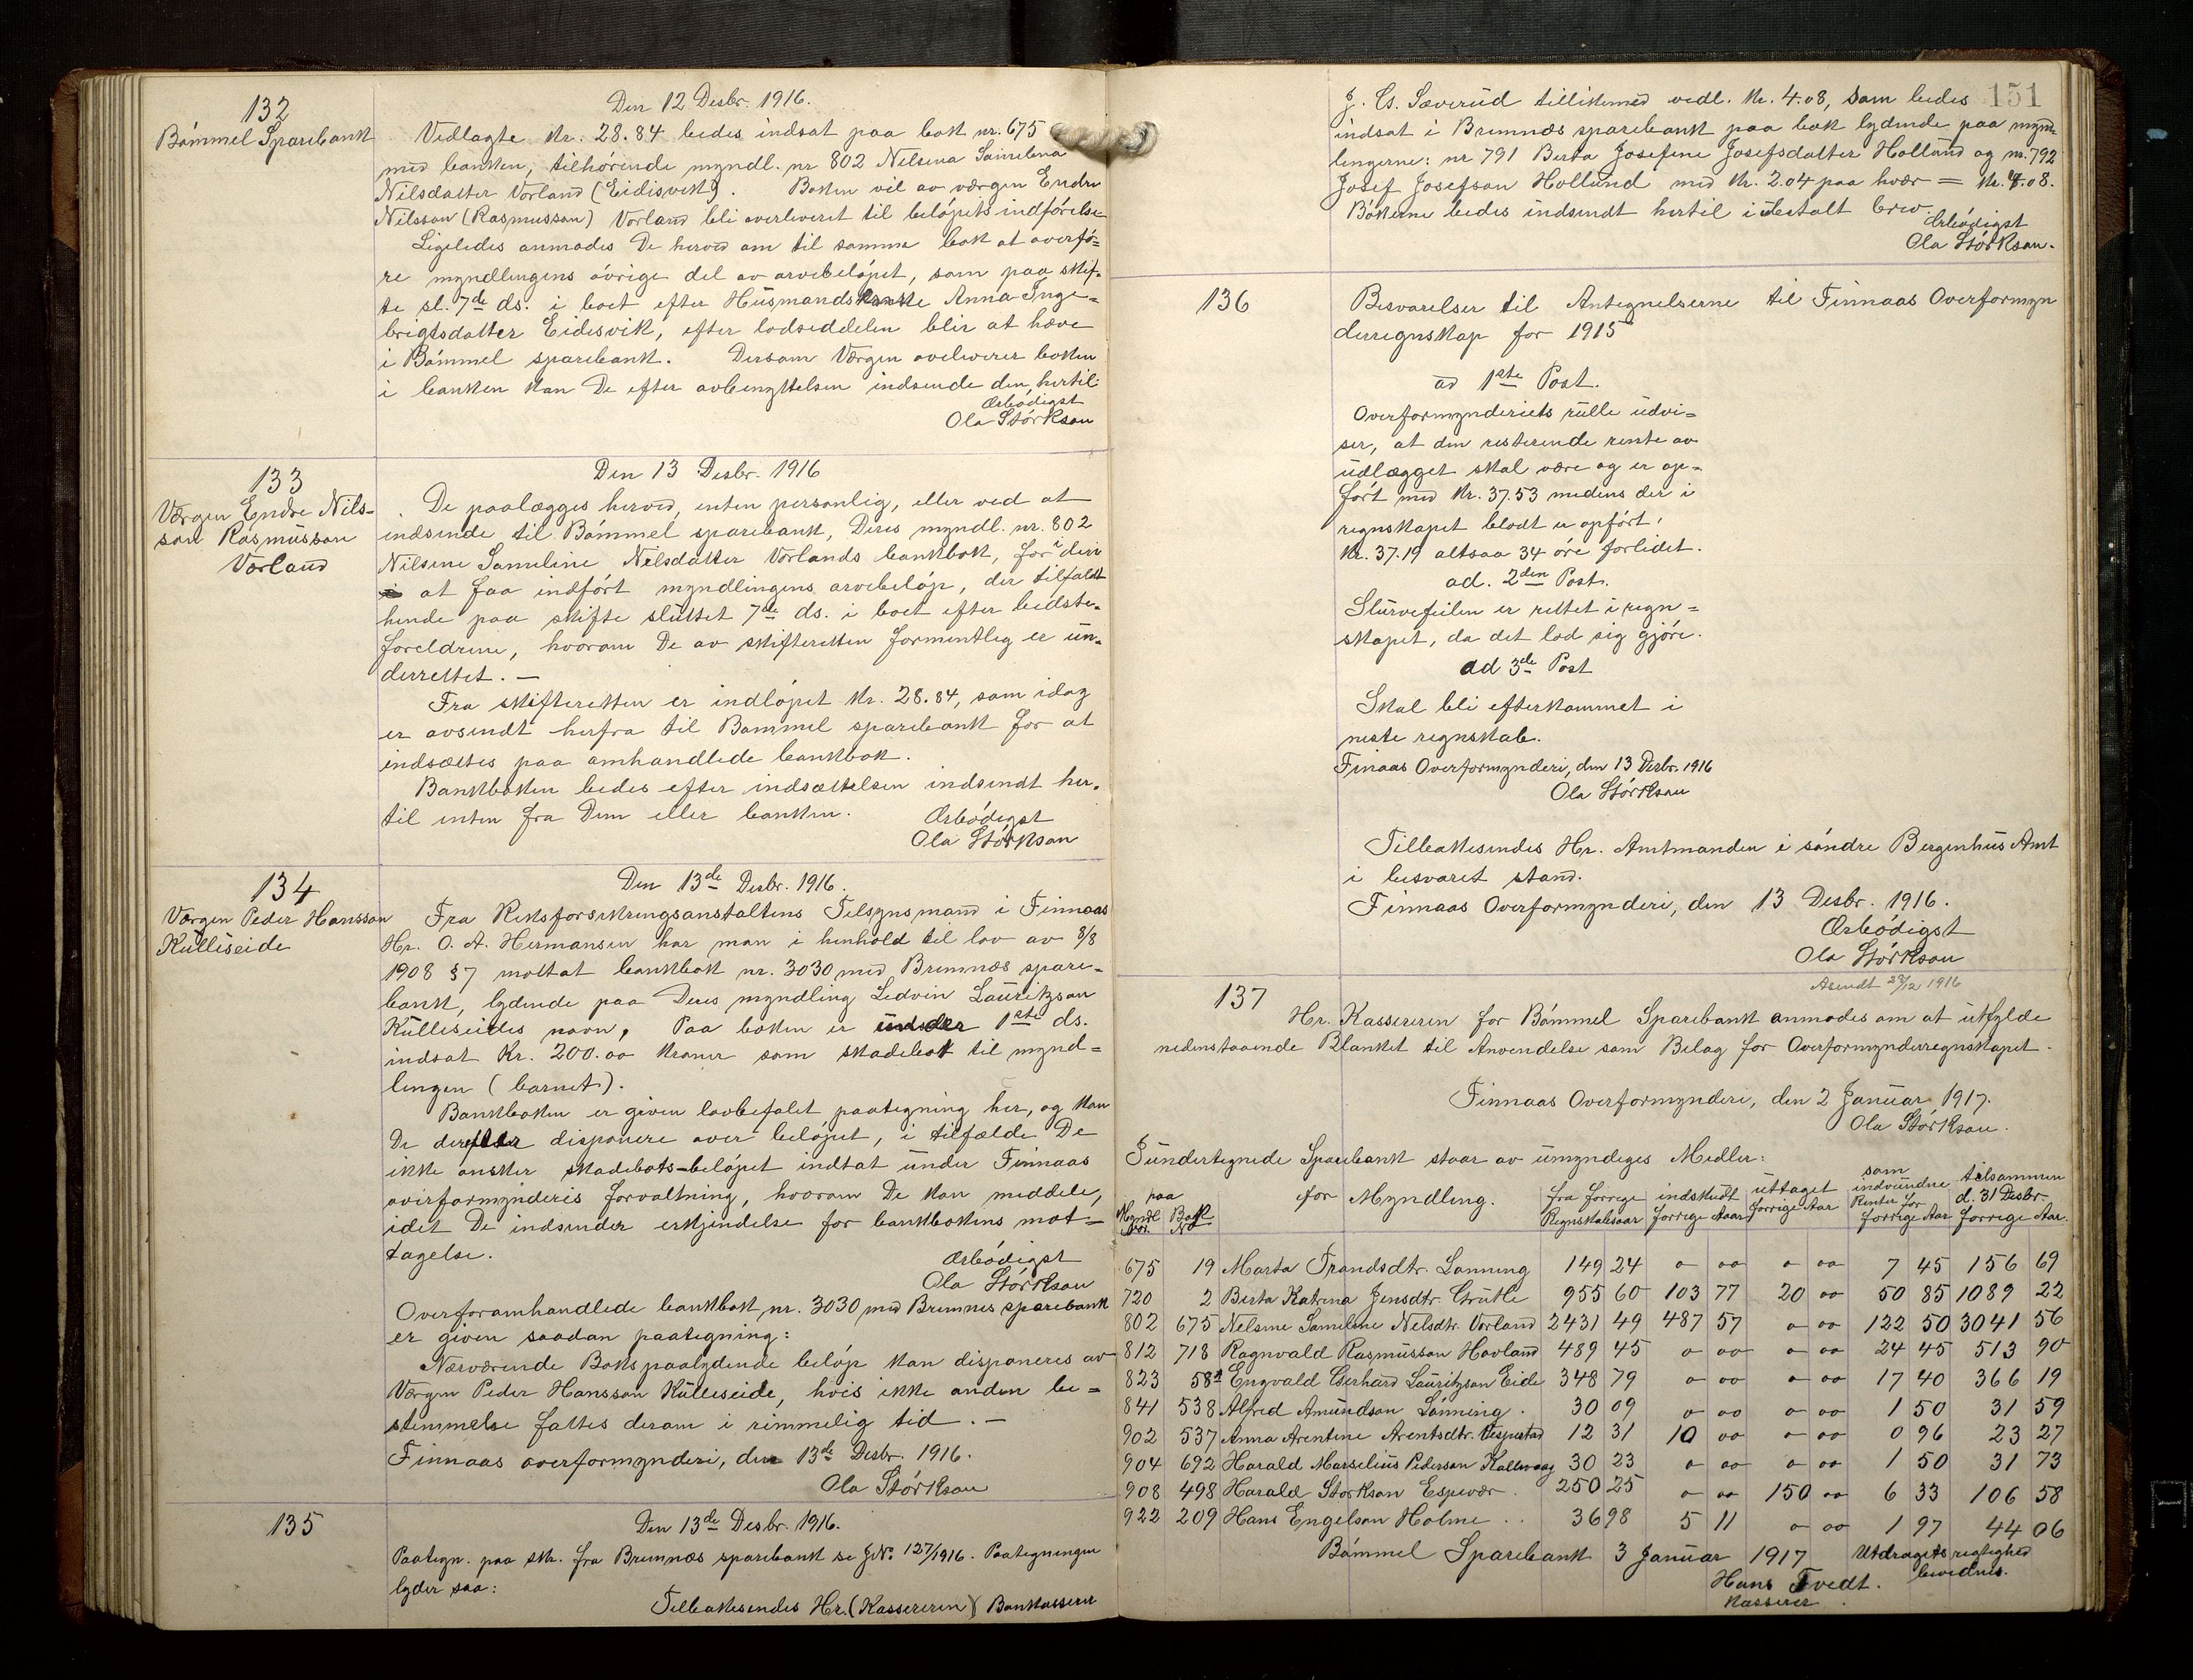 132
Bømmel Sparebank
Den 12 Desbr. 1916.
Vedlagte Kr. 28.84 bedes indsat paa bok nr. 675
med banken, tilhørende myndl. nr 802 Nelsena Samelena
Nilsdatter Vorland (Eidisvik). Boken vil av værgen Endre
Nilsson (Rasmusson) Vorland bli overleveret til beløpets indførelse
Ligeledes anmodes De herved om til samme bok at overfø=
re myndlingens øvrige del av arvebeløpet, som paa skif-
te sl. 7de ds. i boet efter Husmandskone Anna Inge=
brigtsdatter Eidesvik, efter lodseddelen blir at hæve
i Bømmel sparebank. Dersom Værgen avleverer boken
i banken kan De efter avbenyttelsen indsende den hertil.
Ærbødigst
Ola Størkson
133
Værgen Endre Nils-
son Rasmusson
Vorland
Den 13 Desbr. 1916
De paalægges herved, enten personlig, eller ved at
indsende til Bømmel sparebank, Deres myndl. nr. 802
Nilsine Sameline Nilsdatter Vorlands bankbok, for i den
at faa indført myndlingens arvebeløp, der tilfaldt
hende paa skifte sluttet 7de ds. i boet efter bedste-
foreldrene, hvorom De av skifteretten formentlig er un-
derrettet. —
Fra skifteretten er indløpet Kr. 28.84, som idag
er avsendt herfra til Bømmel sparebank for at
indsættes paa omhandlede bankbok.
Bankboken bedes efter indsættelsen indsendt her-
til enten fra Dem eller banken.
Ærbødigst
Ola Størkson
134
Værgen Peder Hansson
Kulleseide
Den 13de Desbr. 1916.
Fra Riksforsikringsanstaltens Tilsynsmand i Finnaas
Hr. O. A. Hermansen har man i henhold til lov av 8/8
1908 § 7 mottat bankbok nr. 3030 med Bremnes spare-
bank, lydende paa Deres myndling Ledvin Lauritzson
Kulleseides navn, Paa boken er under 1ste ds.
indsat Kr. 200.00 kroner som skadebot til mynd=
lingen (barnet).
Bankboken er given lovbefalet paategning her, og kan
De derefter disponere over beløpet, i tilfælde De
ikke ønsker skadebots-beløpet indtat under Finnaas
overformynderis forvaltning, hvorom De kan meddele,
idet De indsender erkjendelse for bankbokens mot=
tagelse.
Ærbødigst
Ola Størkson
Overforamhandlede bankbok nr. 3030 med Bremnes sparebank
er given saadan paategning:
Nærværende Boks paalydende beløp kan disponeres av
Værgen Peder Hansson Kulleseide, hvis ikke anden be=
stemmelse fattes derom i rimmelig tid. —
Finnaas overformynderi, den 13de Desbr. 1916.
Ola Størkson
135
Den 13de Desbr. 1916.
Paategn. paa skr. fra Bremnæs sparebank se J.No. 127/1916. Paategningen
lyder saa:
Tilbakesendes Hr. (Kassereren) Bankkasserer
151
J. Cs. Sæverud tillikemed vedl. Kr. 4.08, som bedes
indsat i Bremnæs sparebank paa bok lydende paa mynd-
lingerne: nr 791 Berta Josefine Josefsdatter Hollund og nr. 792
Josef Josefson Hollund med Kr. 2.04 paa hvær = Kr. 4.08.
Bøkerne bedes indsendt hertil i betalt brev.
Ærbødigst
Ola Størkson.
136
Besvarelser til Antegnelserne til Finnaas Overformyn
derregnskap for 1915
ad 1ste Post.
Overformynderiets rulle udvi=
ser, at den resterende rente av
udlægget skal være og er op=
ført med Kr. 37.53 medens der i
regnskapet blodt er opført,
Kr. 37.19 altsaa 34 øre forlidet.
ad. 2den Post.
Slurvefeilen er rettet i regn=
skapet, da det lod sig gjøre.
ad 3de Post
Skal bli efterkommet i
neste regnskab.
Finaas Overformynderi, den 13 Desbr. 1916
Ola Størkson
Tilbakesendes Hr. Amtmanden i søndre Bergenhus Amt
i besvaret stand.
Finnaas Overformynderi, den 13 Desbr. 1916.
Ærbødigst
Ola Størkson
Asendt 29/12 1916
137
Hr. Kassereren for Bømmel Sparebank anmodes om at utfylde
nedenstaaende Blanket til Anvendelse som Bilag for Overformynderregnskapet.
Finnaas Overformynderi, den 2 Januar 1917.
Ola Størkson.
I undertegnede Sparebank staar av umyndiges Midler:
Myndl nr. paa Bok No for Myndling. fra forrige Regnskabsaar indskudt forrige Aaar uttaget forrige Aar som indvundne Renter for forrige Aar tilsammen d. 31 Desbr forrige Aar.
675 19 Marta Trandsdtr. Lønning 149 24 0 00 0 00 7 45 156 69
720 2 Berta Katrina Jensdtr. Grutle 955 60 103 77 20 00 50 85 1089 22
802 675 Nelsine Sameline Nelsdtr. Vorland 2431 49 487 57 0 00 122 50 3041 56
812 718 Ragnvald Rasmusson Hovland 489 45 0 00 0 00 24 45 513 90
823 581 Engvald Gerhard Lauritzson Eide 348 79 0 00 0 00 17 40 366 19
841 538 Alfred Amundson Lønning. 30 09 0 00 0 00 1 50 31 59
902 537 Anna Arentine Arentsdtr. Vespestad 12 31 10 00 0 00 0 96 23 27
904 692 Harald Marselius Pederson Kallevaag 30 23 0 00 0 00 1 50 31 73
908 498 Harald Størkson Espevær. 250 25 0 00 150 00 6 33 106 58
922 209 Hans Engelson Holme . . 36 98 5 11 0 00 1 97 44 06
Bømmel Sparebank 3 Januar 1917 Utdragets rigtighed
Hans Tvedt. bevidnes.
Kasserer